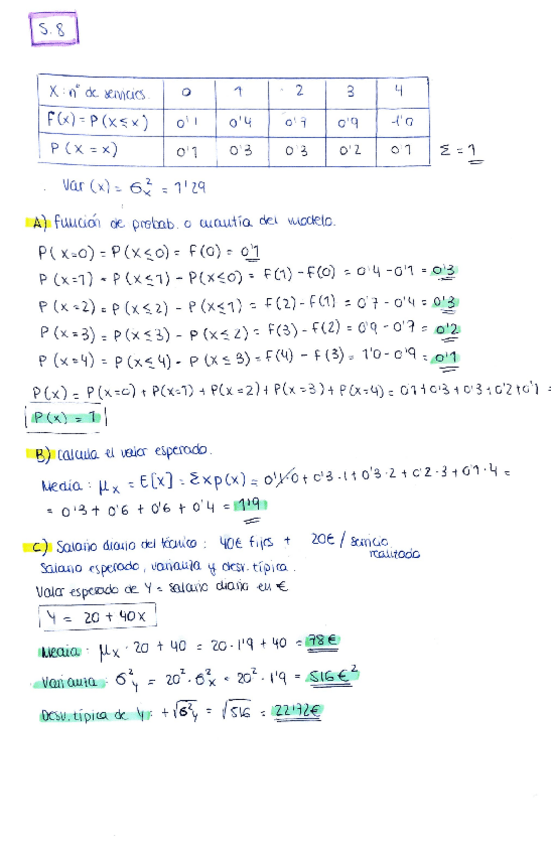 5.8
X: nº de servicios. 0 1 2 3 4
F(x) = P(X≤x) 0'1 0'4 0'7 0'9 1'0
P(X=x) 0'1 0'3 0'3 0'2 0'1 Σ = 1
Var(x) = σ²ₓ = 1'29
A) función de probab. o cuantía del modelo.
P(X=0) = P(X≤0) = F(0) = 0'1
P(X=1) = P(X≤1) - P(X≤0) = F(1) - F(0) = 0'4 - 0'1 = 0'3
P(X=2) = P(X≤2) - P(X≤1) = F(2) - F(1) = 0'7 - 0'4 = 0'3
P(X=3) = P(X≤3) - P(X≤2) = F(3) - F(2) = 0'9 - 0'7 = 0'2
P(X=4) = P(X≤4) - P(X≤3) = F(4) - F(3) = 1'0 - 0'9 = 0'1
P(x) = P(X=0) + P(X=1) + P(X=2) + P(X=3) + P(X=4) = 0'1 + 0'3 + 0'3 + 0'2 + 0'1 =
P(x) = 1
B) calcula el valor esperado.
Media: μₓ = E[X] = Σxp(x) = 0'1·0 + 0'3·1 + 0'3·2 + 0'2·3 + 0'1·4 =
= 0'3 + 0'6 + 0'6 + 0'4 = 1'9
C) Salario diario del técnico: 40€ fijos + 20€ / servicio
realizado
Salario esperado, varianza y desv. típica.
Valor esperado de Y = salario diario en €
Y = 20 + 40x
Media: μₓ · 20 + 40 = 20 · 1'9 + 40 = 78€
Varianza: σ²ᵧ = 20² · σ²ₓ = 20² · 1'9 = 516€²
Desv. típica de Y: +√σ²ᵧ = √516 = 22'72€